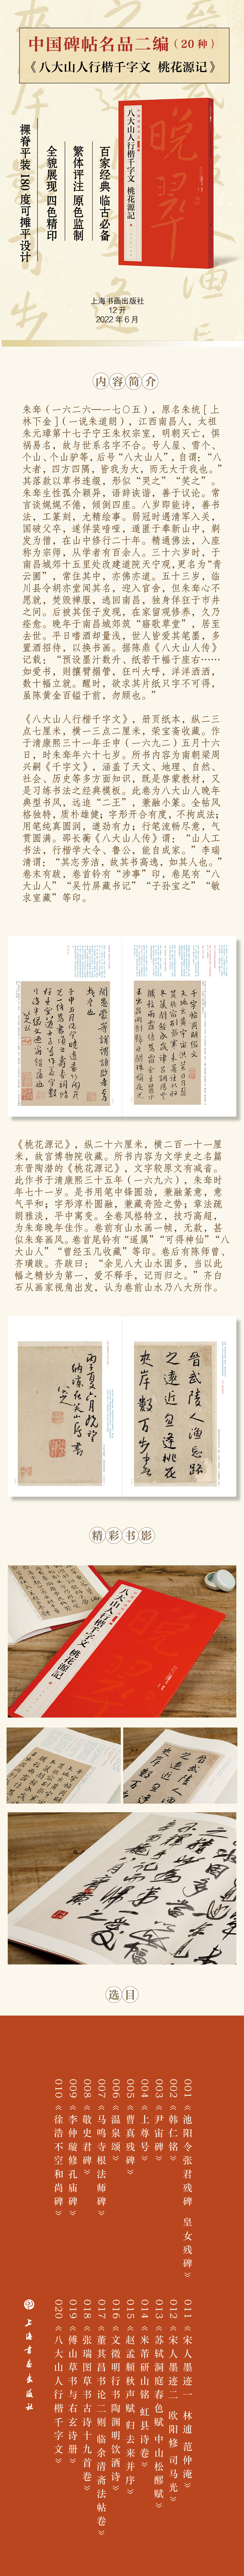 中国碑帖名品二编（20 种）
《八大山人行楷千字文 桃花源记》
百家经典 临古必备
繁体评注 原色监制
全貌展现 四色精印
裸脊平装 180 度可摊平设计
晚翠
八大山人行楷千字文 桃花源記
上海书画出版社
12 开
2022 年 6 月
内容简介
朱耷（一六二六一一七〇五），原名朱统［上
林下金］(一说朱道朗)，江西南昌人，太祖
朱元璋第十七子宁王朱权宗室，明朝灭亡，惧
祸易名，故与世系名字不合。号人屋、雪个、
个山、个山驴等，后号“八大山人”，自谓：“八
大者，四方四隅，皆我为大，而无大于我也。”
其落款以草书连缀，形似“哭之”“笑之”。
朱耷生性孤介颖异，语辞诙谐，善于议论。常
言谈娓娓不倦，倾倒四座。八岁即能诗，善书
法，工篆刻，尤精绘事。弱冠时遇清军入关，
国破父亡，遂佯装喑哑，遁匿于奉新山中，剃
发为僧，在山中修行二十年。精通佛法，入座
称为宗师，从学者有百余人。三十六岁时，于
南昌城郊十五里处改建道院天宁观，更名为“青
云圃”，常住其中，亦佛亦道。五十三岁，临
川县令胡亦堂闻其名，迎入官舍，但朱耷心不
愿就，焚毁禅服，逃回南昌，独身佯狂于市井
之间。后被其侄子发现，在家留观修养，久乃
痊愈。晚年于南昌城郊筑“寤歌草堂”，居至
去世。平日嗜酒却量浅，世人皆爱其笔墨，多
置酒招待，以换书画。据陈鼎《八大山人传》
记载：“预设墨计数升、纸若干幅于座右……
如爱书，则攘臂搦管，狂叫大呼，洋洋洒洒，
数十幅立就。醒时，欲求其片纸只字不可得，
虽陈黄金百镒于前，勿顾也。”
《八大山人行楷千字文》，册页纸本，纵二三
点七厘米，横一三点二厘米，荣宝斋收藏。作
于清康熙三十一年壬申（一六九二）五月十六
日，时朱耷年六十七岁。所书内容为南朝梁周
兴嗣《千字文》，涵盖了天文、地理、自然、
社会、历史等多方面知识，既是启蒙教材，又
是习练书法之经典模板。此卷为八大山人晚年
典型书风，远追“二王”，兼融小篆。全帖风
格独特，质朴雄健；字形开合有度，不拘成法；
用笔纯真圆润，遒劲有力；行笔流畅尽意，气
贯圆满。邵长蘅《八大山人传》谓：“山人工
书法，行楷学大令、鲁公，能自成家。”李瑞
清谓：“其志芳洁，故其书高逸，如其人也。”
卷末有跋，卷首钤有“涉事”印，卷尾有“八
大山人”“吴竹屏藏书记”“子孙宝之”“敏
求室藏”等印。
《桃花源记》，纵二十六厘米，横二百一十一厘
米，故宫博物院收藏。所书内容为文学史之名篇
东晋陶潜的《桃花源记》，文字较原文有减省。
此作书于清康熙三十五年（一六九六），朱耷时
年七十一岁。是书用笔中锋圆劲，兼融篆意，意
气平和；字形淳朴圆融，兼藏奇险之势；章法疏
朗雅淡，平中寓变。全卷风格特立，技巧高超，
为朱耷晚年佳作。卷前有山水画一帧，无款，甚
似朱耷画风。卷首尾钤有“遥属”“可得神仙”“八
大山人”“曾经玉几收藏”等印。卷后有陈师曾、
齐璜跋。齐跋曰：“余见八大山水固多，当以此
幅之精妙为第一，爱不释手，记而归之。”齐白
石从画家视角出发，认为卷前山水乃八大所作。
晋武陵人渔忘路
之远近逢桃花
夹岸数百步中无
精彩书影
八大山人行楷千字文 桃花源記
选目
001《池阳令张君残碑 皇女残碑》
002《韩仁铭》
003《尹宙碑》
004《上尊号》
005《曹真残碑》
006《温泉颂》
007《马鸣寺根法师碑》
008《敬史君碑》
009《李仲璇修孔庙碑》
010《徐浩不空和尚碑》
011《宋人墨迹一 林逋 范仲淹》
012《宋人墨迹二 欧阳修 司马光》
013《苏轼洞庭春色赋 中山松醪赋》
014《米芾研山铭 虹县诗卷》
015《赵孟頫秋声赋 归去来并序》
016《文徵明行书陶渊明饮酒诗》
017《董其昌书论二则 临余清斋法帖卷》
018《张瑞图草书古诗十九首卷》
019《傅山草书与右玄诗册》
020《八大山人行楷千字文》
上海书画出版社